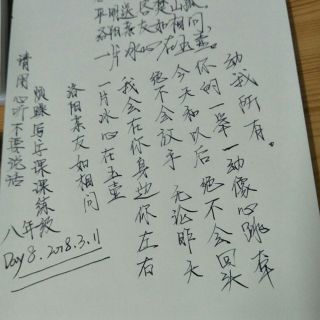 平明送客楚山孤
洛阳亲友如相问
一片冰心在玉壶。
请用心听不要说话
写字课课练
八年级
Day 8. 2018.3.11
洛阳亲友如相问
一片冰心在玉壶
我会在你身边你左右
绝不会放手 无论昨天
今天和以后 绝不会回头
你的一举一动像心跳牵
动我所有。